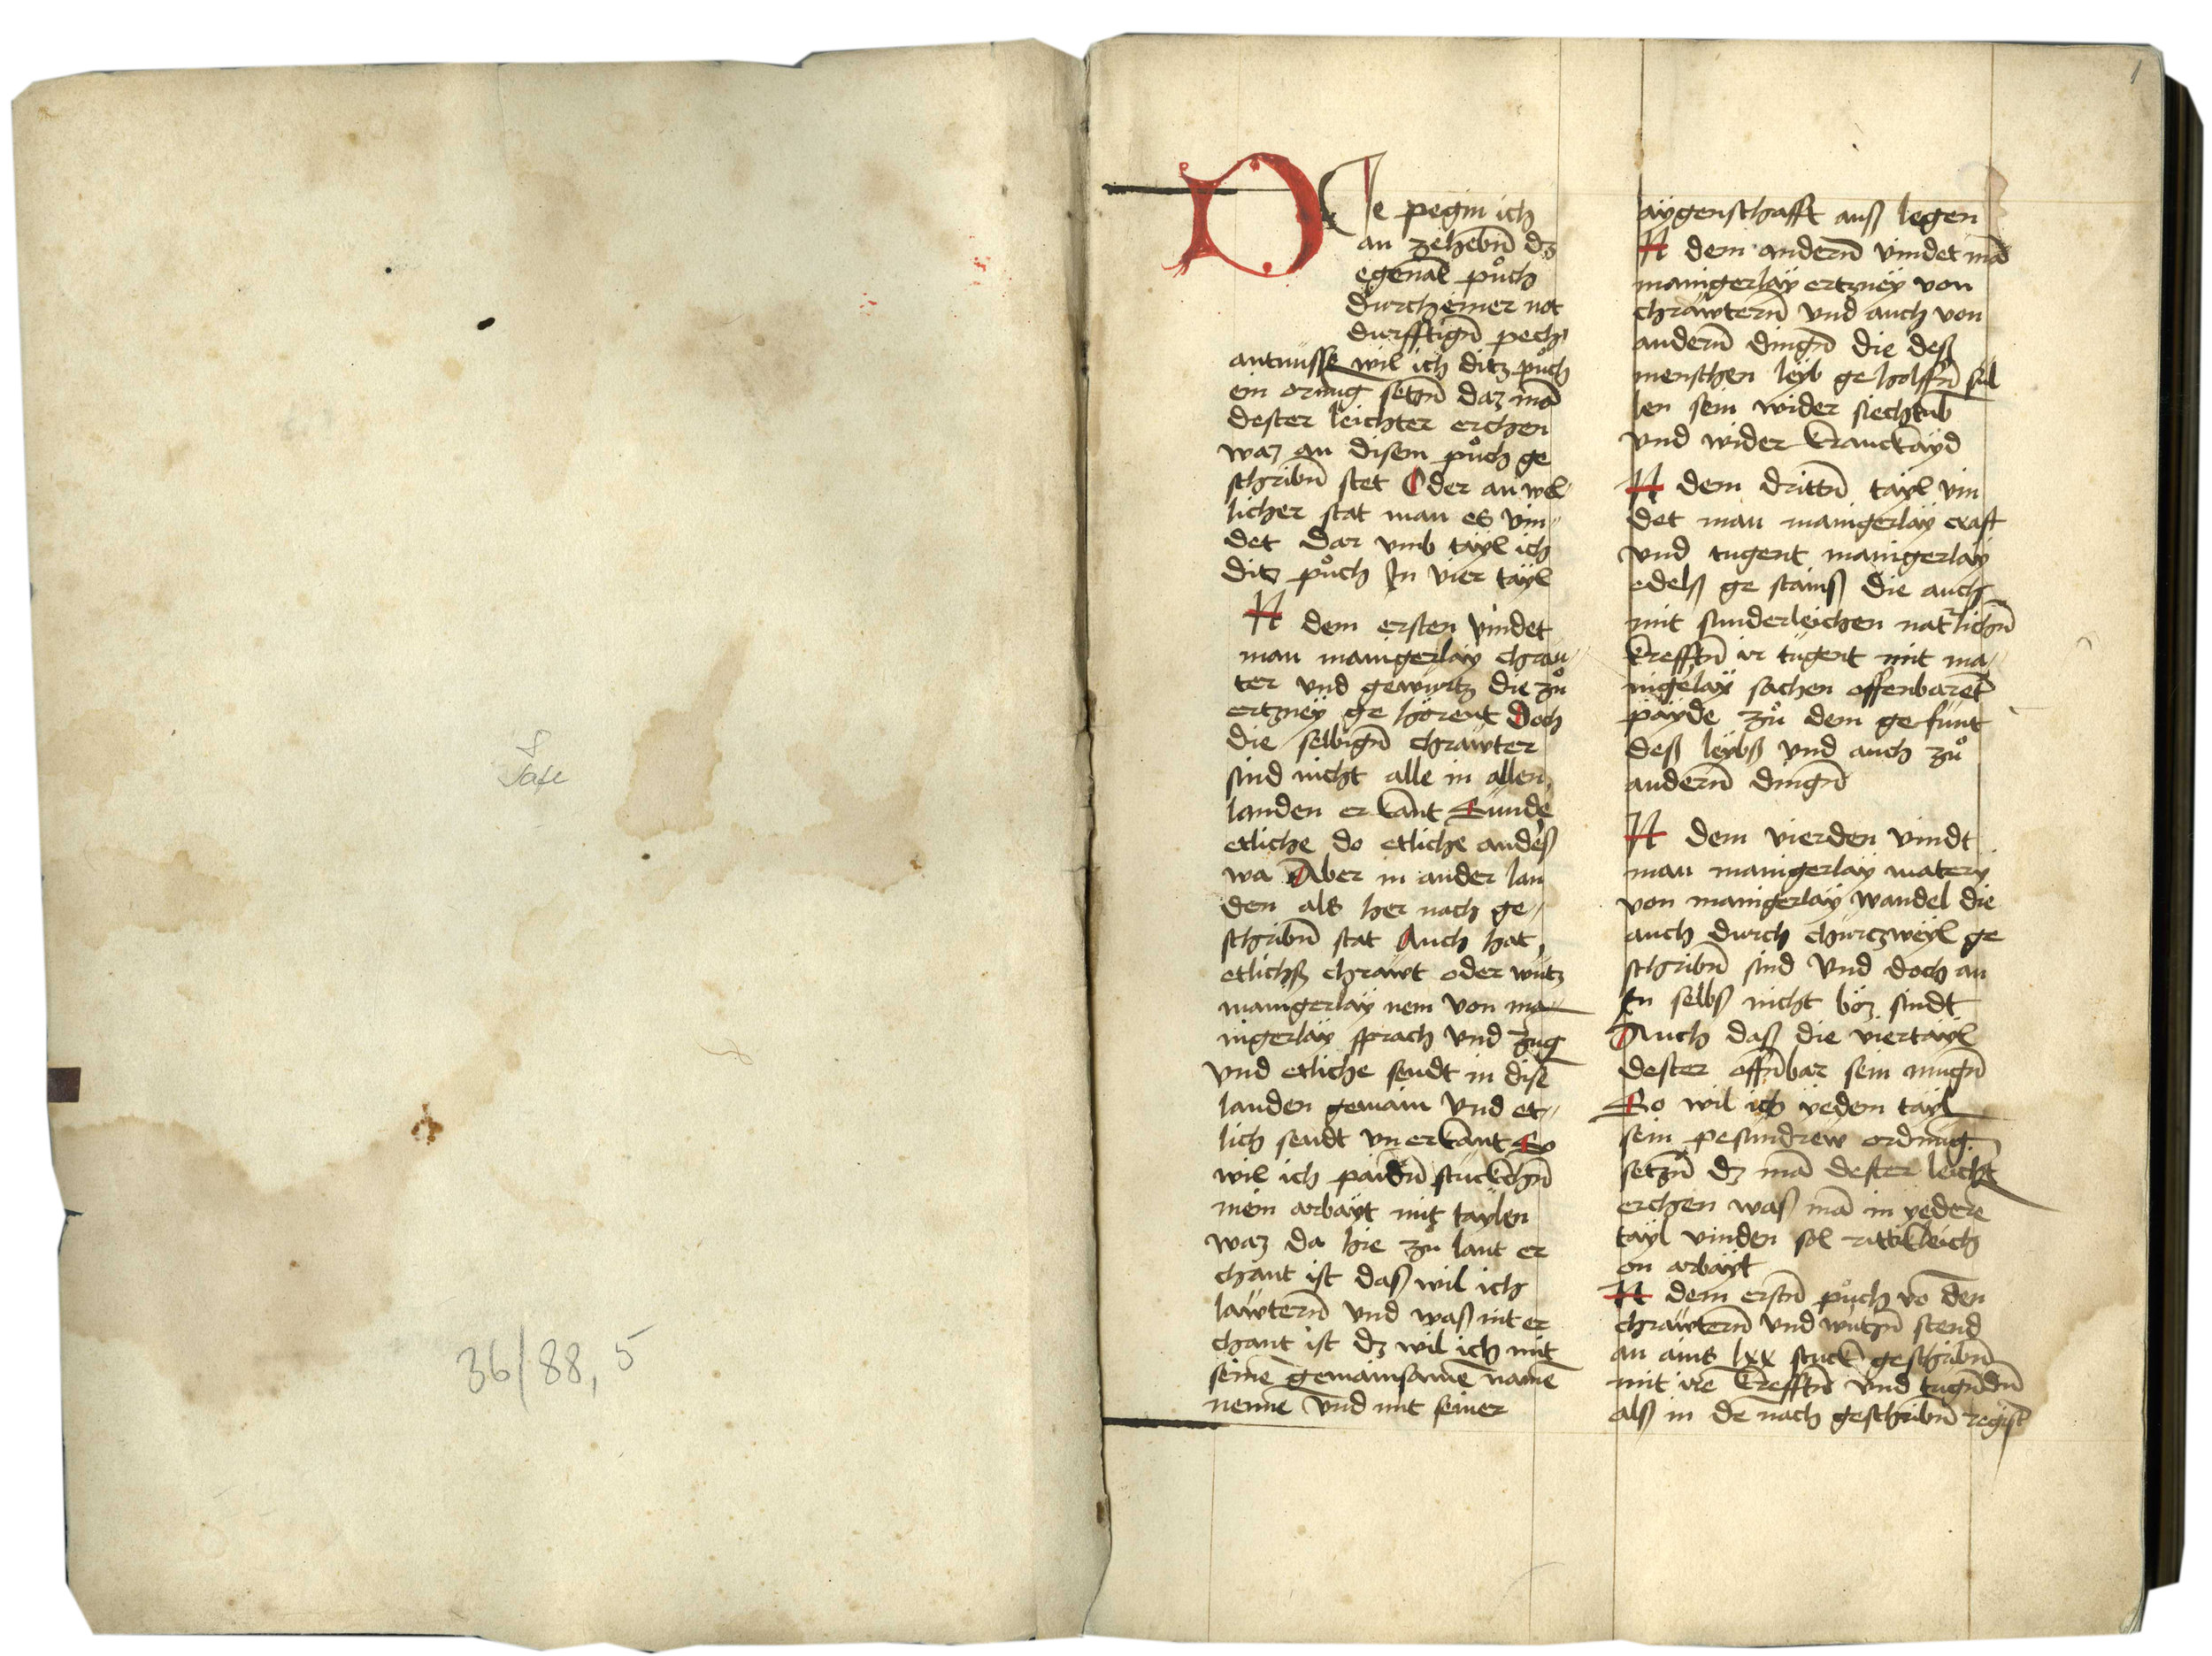 8
Tafe
36/88, 5
1
DIe pegin ich
an zehebn̄ dz
egenāt půch
durch einer not
durfftign̄ pech
antnusse wil ich ditz půch
ein ornūg setzn̄ daz mā
dester leichter erchen
waz an disem půch ge
schribn̄ stet Oder an wel„
licher stat man es vin„
det dar vmb taÿl ich
ditz půch Jn vier taÿl
N dem ersten vindet
man manigerlaÿ chraw„
ter vnd gewurtz die zů
ertzneÿ ge hörent Doch
die selbign̄ chrawter
sind nicht alle in allen
landen er kānt Sunde
etliche do etliche anders
wa Aber in ander lan
den als her nach ge„
schribn̄ stat Auch hat
etlichß chrawt oder wutz
manigerlaÿ nem von ma
nigerlaÿ sprach vnd zūg
vnd etliche sendt in dise
landen gemain vnd et„
lich sendt vn erkānt So
wil ich paidn̄ stuckchn̄
mein arbaÿt mit taÿlen
waz da hie zů lant er
chant ist daß wil ich
lawtern̄ vnd waß nit er
chant ist dz wil ich mit
seinē gemainsamē namē
nennē vnd mit seiner
aÿgenschafft auß legen
N dem andern̄ vindet mā
manigerlaÿ ertzneÿ von
chrawtern̄ vnd auch von
andern̄ dingn̄ die deß
menschen leÿb ge holffn̄ sul
len sein wider siechtub
vnd wider kranckaÿd
N dem drittn̄ taÿl vin
det man manigerlaÿ craft
vnd tugent manigerlaÿ
edelß ge stainß die auch
mit sunderleichen natʳlichn̄
krefftn̄ ir tugent mit ma„
nigelaÿ sachen offenbaret
paÿde zů dem ge sunt
deß leÿbß vnd auch zů
andern̄ dingn̄
N dem vierden vindt
man manigerlaÿ matery
von manigerlaÿ wandel die
auch durch churczweÿl ge
schribn̄ sind Vnd doch an
Jn selbß nicht böz sindt
Auch daß die viertaÿl
dester offn̄bar sein mugn̄
So wil ich ÿedem taÿl
sein pesundrew ordnūg
setzn̄ dz mā dester leicht
erchen waß mā in ÿedere
taÿl vinden sol
on arbaÿt
N dem erstn̄ půch vō den
chrawtern̄ vnd wutzn̄ stend
an ains lxx stuck geschribn̄
mit ire krefftn̄ vnd tugn̄dn̄
alß in dē nach geschribn̄ regist